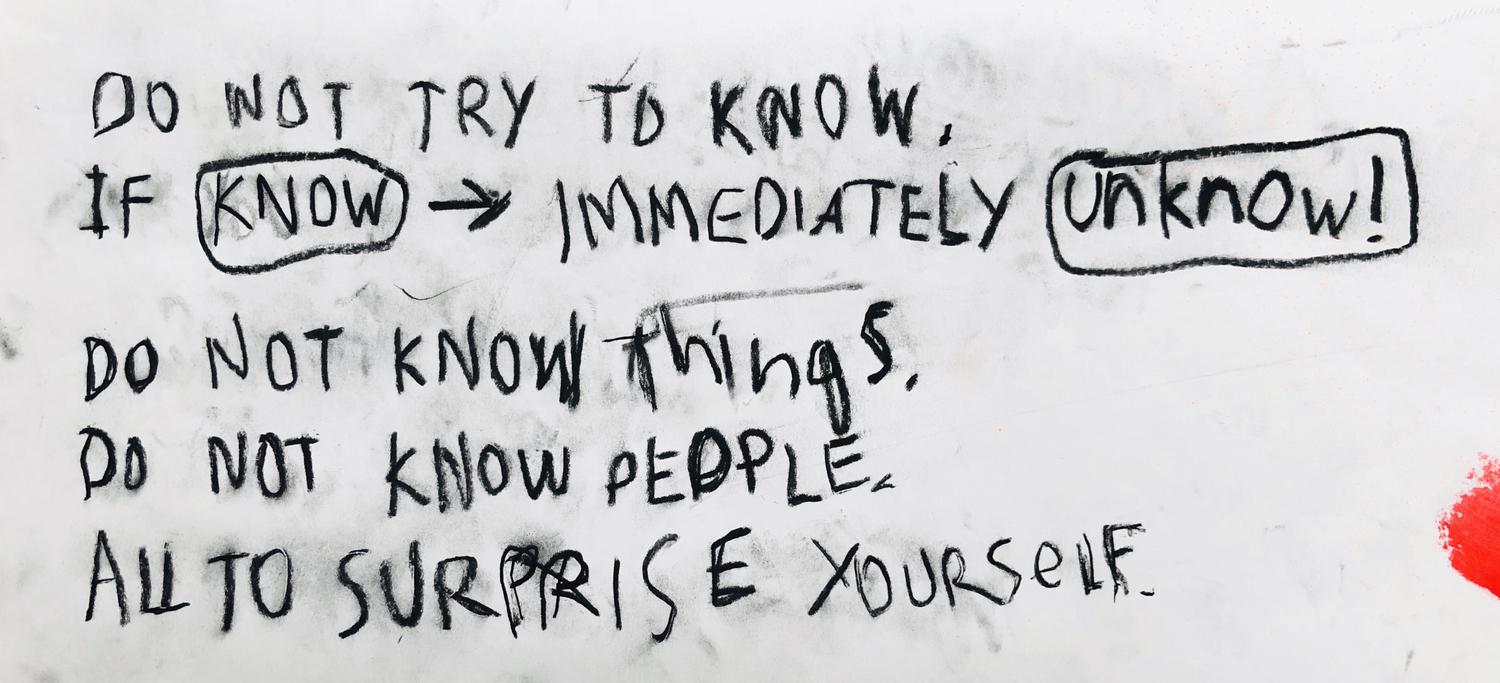 DO NOT TRY TO KNOW.
IF KNOW → IMMEDIATELY unknow!
DO NOT KNOW things.
DO NOT KNOW PEOPLE.
ALL TO SURPRISE YOURSeLF.